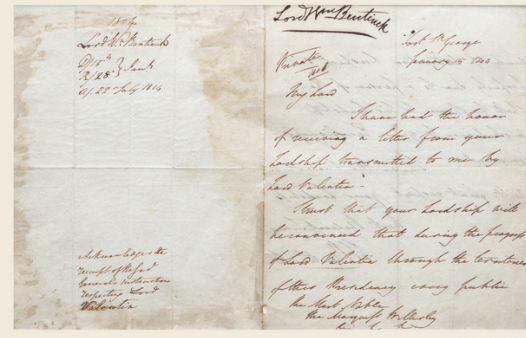 1804
Lord Wm Bentinck
D/15th
R/28th } Jany
A/22nd July 1804
Acknowledges the
receipt of
General's instructions
respecting Lord
Valentia
Lord Wm Bentinck
Fort St George
January 15 1804
Private
My Lord
I have had the honor
of receiving a letter from your
Lordship transmitted to me by
Lord Valentia -
I trust that your Lordship will
be convinced that during the progress
of Lord Valentia through the territories
of this Presidency every public
The Most Noble
The Marquess Wellesley